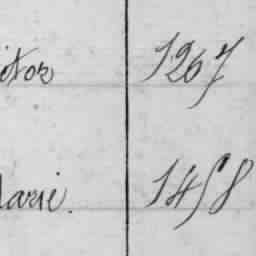 ictor 1267
Marie. 1458